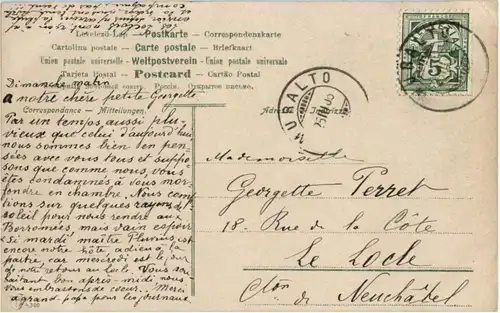 Levelezö-Lap — Postkarte — Correspondenzkarte
Cartolina postale — Carte postale — Briefkaart
Union postale universelle — Weltpostverein — Union postale universelle
Tarjeta Postal — Postcard — Cartão Postal
Correspondance — Mittheilungen.
Dimanche matin
A notre chère petite Georgette
Par un temps aussi plu-
vieux que celui d'aujourd'hui
nous sommes bien en pen-
sées avec vous tous et suppo-
sons que comme nous, vous
êtes condamnés à vous mor-
fondre en chambre. Nous comp-
tions sur quelques rayons de
soleil pour nous rendre aux
Borromées, mais vain espoir
Si mardi maître Pluvius est
encore notre hôte, adieu la
partie, car mercredi est le jour
de notre retour au Locle. Vous sou-
haitant bon après-midi nous
vous embrassons de coeur. Merci
à grand-papa pour les journaux
MURALTO
FRANCO
5
MURALTO
Mademoiselle
Georgette Perret
18 - Rue de la Côte
Le Locle
Cton de Neuchâtel